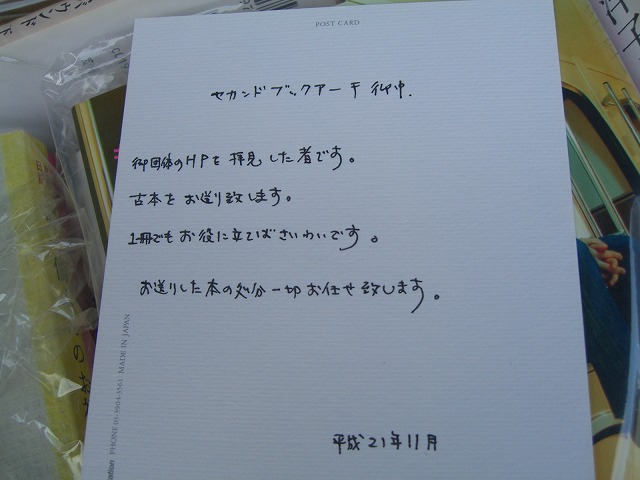 POST CARD
セカンドブックアーチ御中.
御団体のHPを拝見した者です。
古本をお送り致します。
1冊でもお役に立てばさいわいです。
お送りした本の処分一切お任せ致します。
平成21年11月
PHONE 03-5904-5561 MADE IN JAPAN